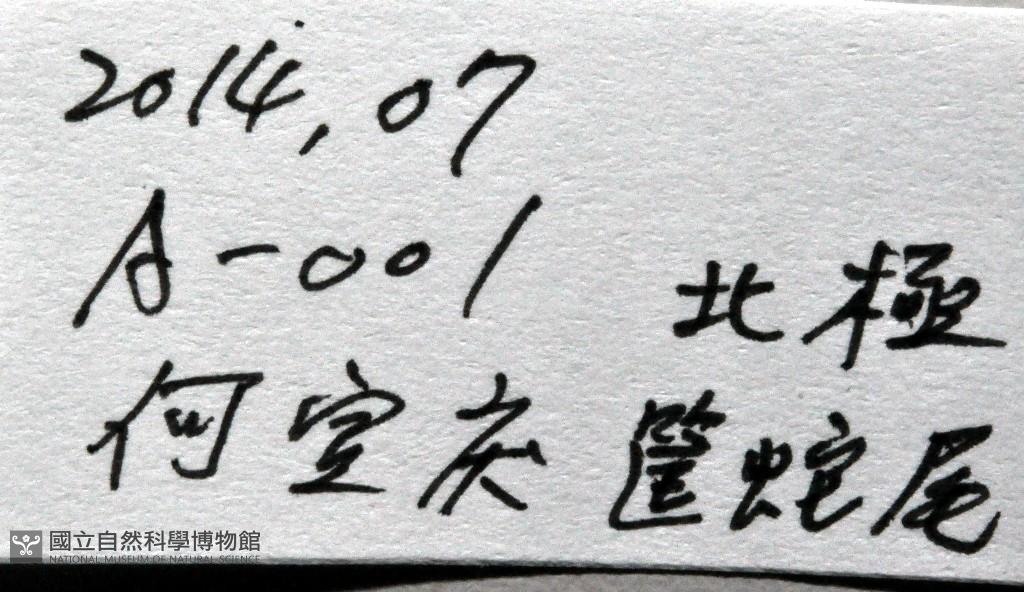 2014,07
A-001
何宣庆
北極
筐蛇尾
國立自然科學博物館
NATIONAL MUSEUM OF NATURAL SCIENCE